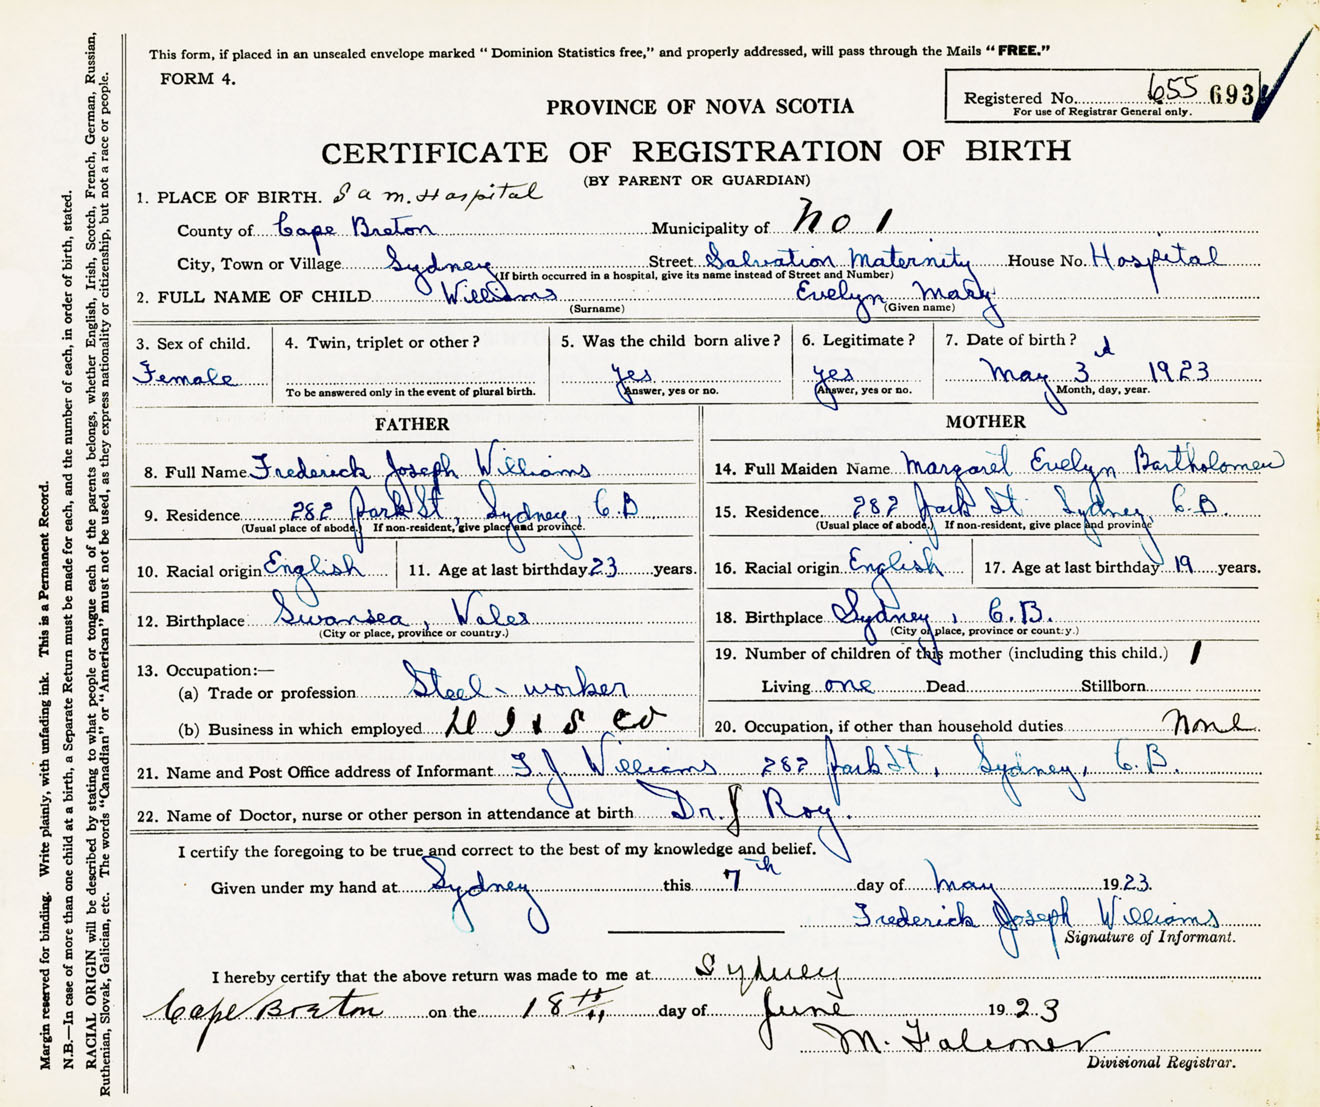 This form, if placed in an unsealed envelope marked " Dominion Statistics free," and properly addressed, will pass through the Mails " FREE."
FORM 4.
Registered No. 655 693
For use of Registrar General only.
PROVINCE OF NOVA SCOTIA
CERTIFICATE OF REGISTRATION OF BIRTH
(BY PARENT OR GUARDIAN)
1. PLACE OF BIRTH. S a m. Hospital
County of Cape Breton Municipality of No 1
City, Town or Village Sydney Street Salvation Maternity House No. Hospital
(If birth occurred in a hospital, give its name instead of Street and Number)
2. FULL NAME OF CHILD Williams Evelyn Mary
(Surname) (Given name)
3. Sex of child. 4. Twin, triplet or other ? 5. Was the child born alive ? 6. Legitimate ? 7. Date of birth ?
Female yes yes May 3d 1923
To be answered only in the event of plural birth. Answer, yes or no. Answer, yes or no. Month, day, year.
FATHER MOTHER
8. Full Name Frederick Joseph Williams 14. Full Maiden Name Margaret Evelyn Bartholomew
9. Residence 282 Park St, Sydney, C.B 15. Residence 282 Park St Sydney, C.B.
(Usual place of abode.) If non-resident, give place and province. (Usual place of abode.) If non-resident, give place and province
10. Racial origin English 11. Age at last birthday 23 years. 16. Racial origin English 17. Age at last birthday 19 years.
12. Birthplace Swansea, Wales 18. Birthplace Sydney, C.B.
(City or place, province or country.) (City or place, province or country.)
13. Occupation:— 19. Number of children of this mother (including this child.) 1
(a) Trade or profession Steel-worker Living one Dead Stillborn
(b) Business in which employed 20. Occupation, if other than household duties None
21. Name and Post Office address of Informant F.J. Williams 282 Park St, Sydney, C.B.
22. Name of Doctor, nurse or other person in attendance at birth Dr. J Roy.
I certify the foregoing to be true and correct to the best of my knowledge and belief.
Given under my hand at Sydney this 7th day of May 1923.
Frederick Joseph Williams
Signature of Informant.
I hereby certify that the above return was made to me at Sydney
Cape Breton on the 18th day of June 1923
M. Falconer
Divisional Registrar.
Margin reserved for binding. Write plainly, with unfading ink. This is a Permanent Record.
N.B.—In case of more than one child at a birth, a Separate Return must be made for each, and the number of each, in order of birth, stated.
RACIAL ORIGIN will be described by stating to what people or tongue each of the parents belongs, whether English, Irish, Scotch, French, German, Russian,
Ruthenian, Slovak, Galician, etc. The words "Canadian" or "American" must not be used, as they express nationality or citizenship, but not a race or people.